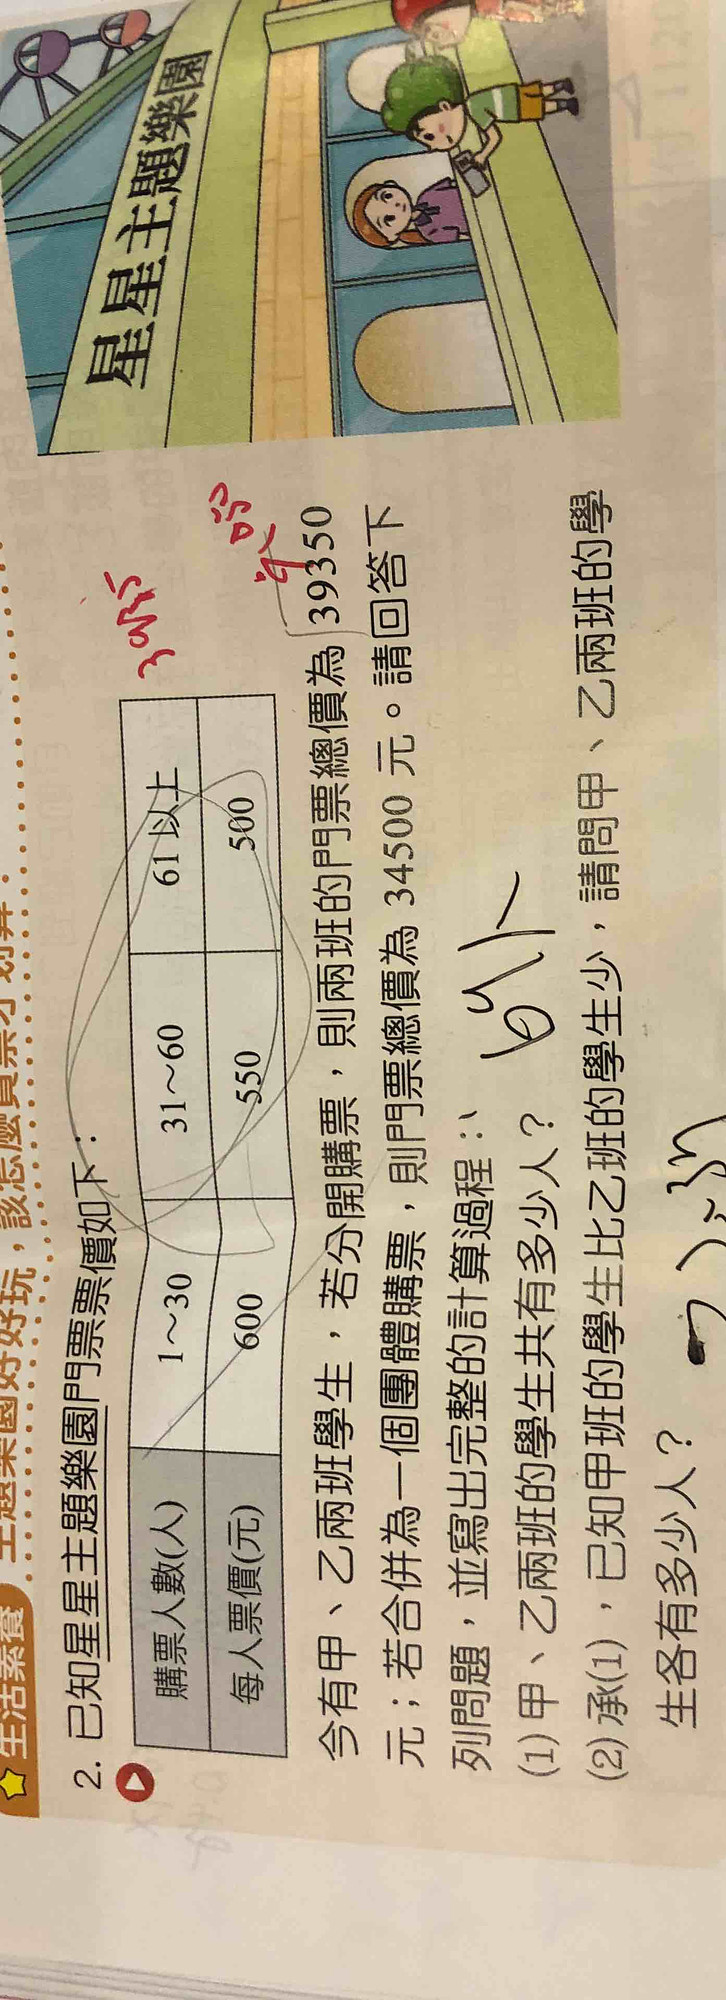 生活素養
星星主題樂園
2. 已知星星主題樂園門票票價如下：
購票人數(人) 1～30 31～60 61 以上
每人票價(元) 600 550 500
今有甲、乙兩班學生，若分開購票，則兩班的門票總價為 39350
元；若合併為一個團體購票，則門票總價為 34500 元。請回答下
列問題，並寫出完整的計算過程：
(1) 甲、乙兩班的學生共有多少人？
69人
(2) 承(1)，已知甲班的學生比乙班的學生少，請問甲、乙兩班的學
生各有多少人？